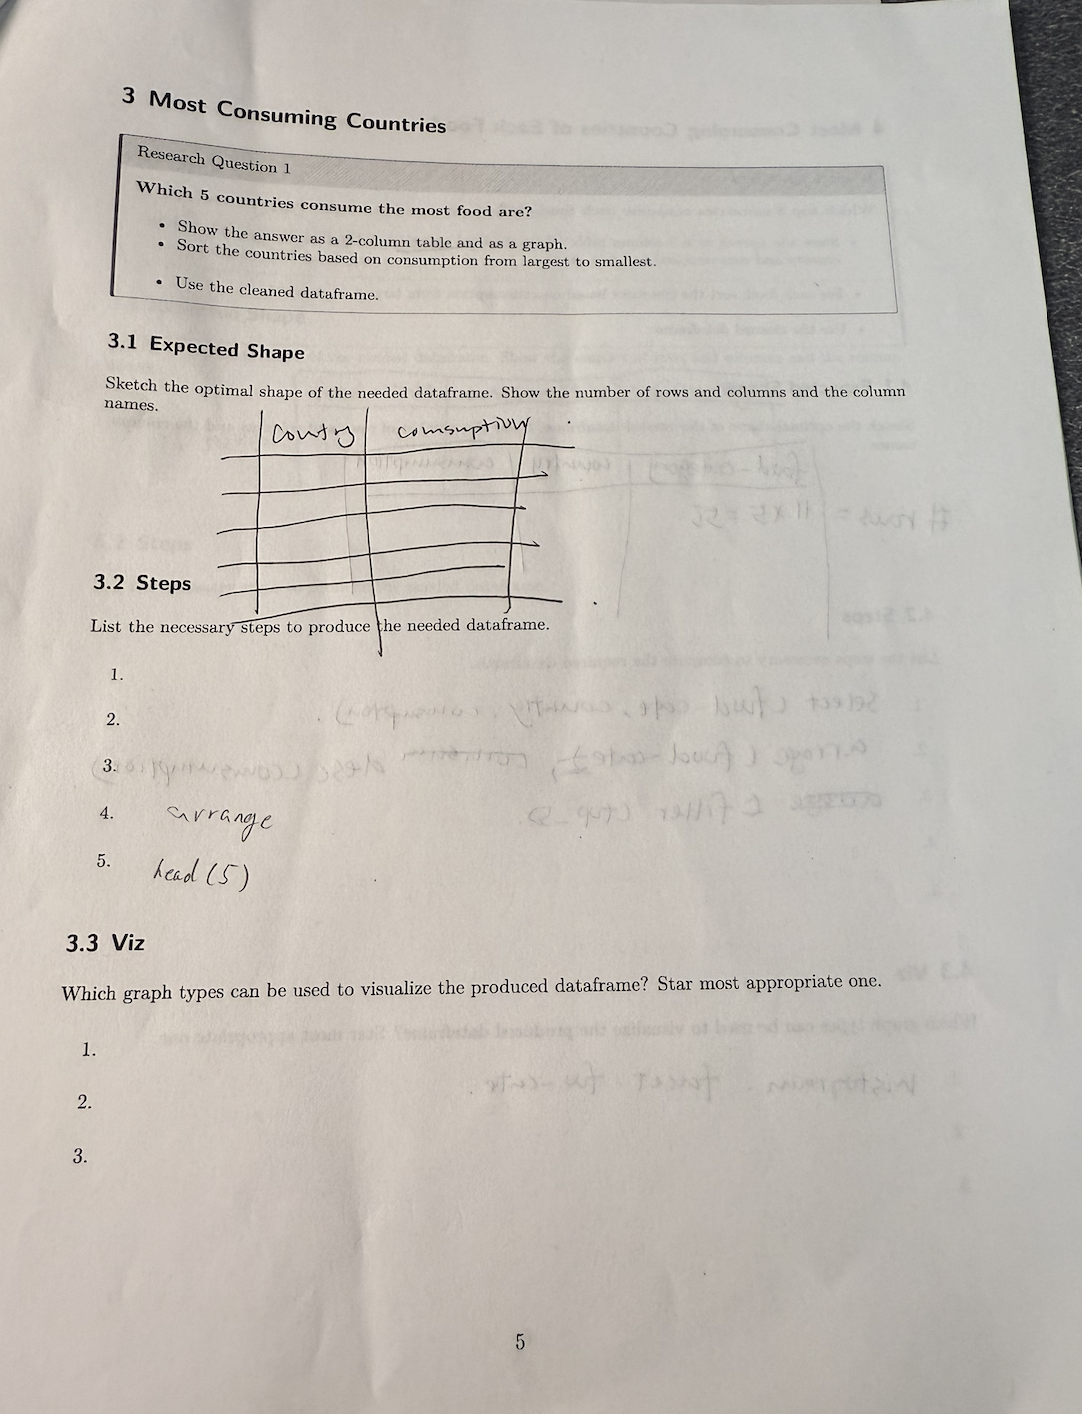 3 Most Consuming Countries
Research Question 1
Which 5 countries consume the most food are?
• Show the answer as a 2-column table and as a graph.
• Sort the countries based on consumption from largest to smallest.
• Use the cleaned dataframe.
3.1 Expected Shape
Sketch the optimal shape of the needed dataframe. Show the number of rows and columns and the column
names.
3.2 Steps
List the necessary steps to produce the needed dataframe.
1.
2.
3.
4. arrange
5. head (5)
3.3 Viz
Which graph types can be used to visualize the produced dataframe? Star most appropriate one.
1.
2.
3.
5